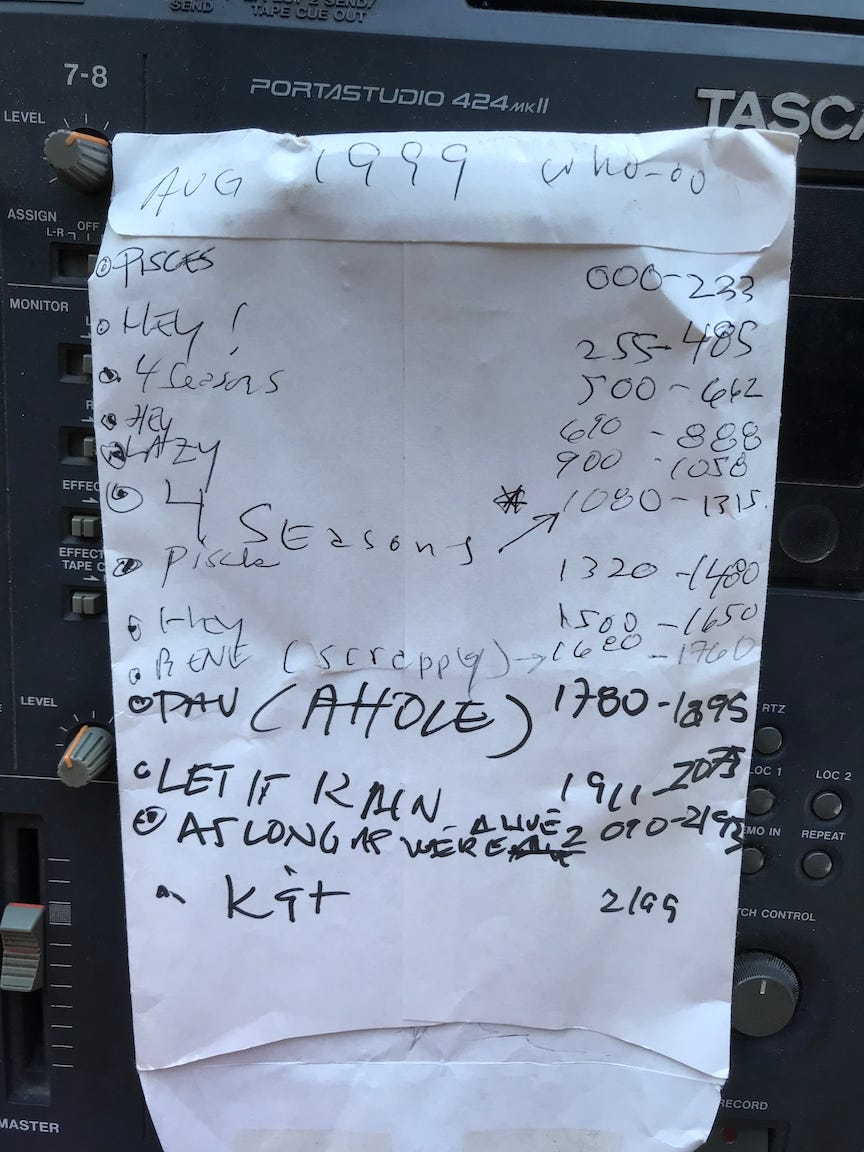 SEND
TAPE CUE OUT
7-8
PORTASTUDIO 424MKII
TASCA
LEVEL
ASSIGN
OFF
L-R
MONITOR
EFFEC
EFFECT
TAPE C
LEVEL
MASTER
AUG 1999 who-oo
PISCES 000-233
HEY! 255-485
4 Seasons 500-662
HEY 690-888
LAZY 900-1058
4 SEasons * 1080-1315
Piscle 1320-1480
Hey 1500-1650
RENE (scrappy) → 1660-1760
PAU (AHOLE) 1780-1895
LET IT RAIN 1911-2075
AS LONG AS WERE ALIVE 2090-2195
2199
RTZ
LOC 1
LOC 2
EMO IN
REPEAT
TCH CONTROL
RECORD